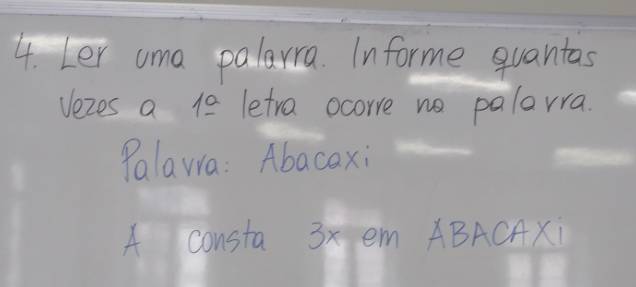 4. Ler uma palavra. Informe quantas
vezes a 1ª letra ocorre na palavra.
Palavra: Abacaxi
A consta 3x em ABACAXi